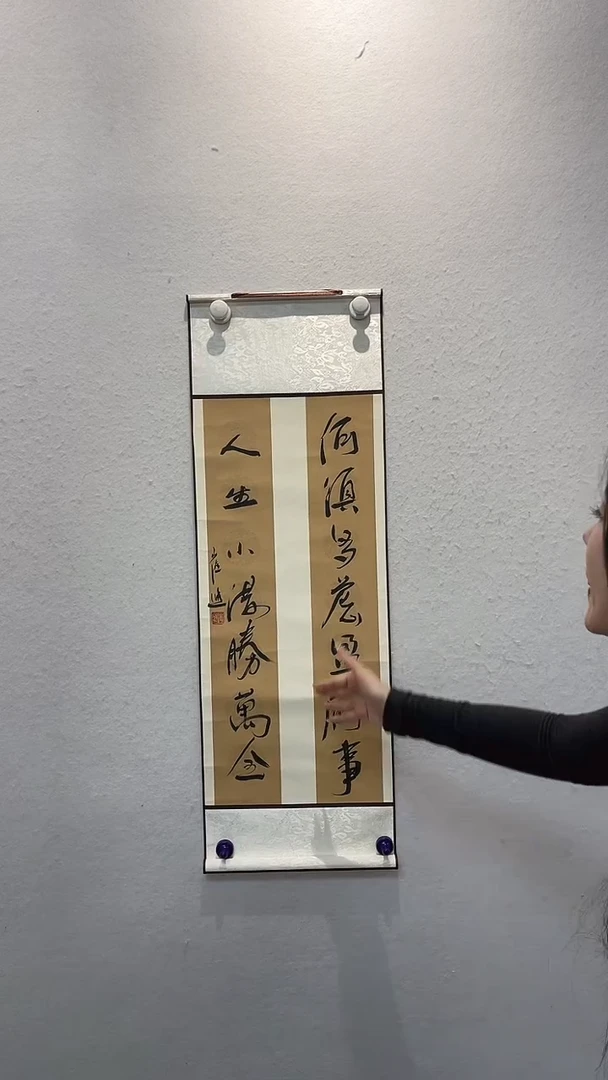 何須多慮盈事
人生小滿勝萬全